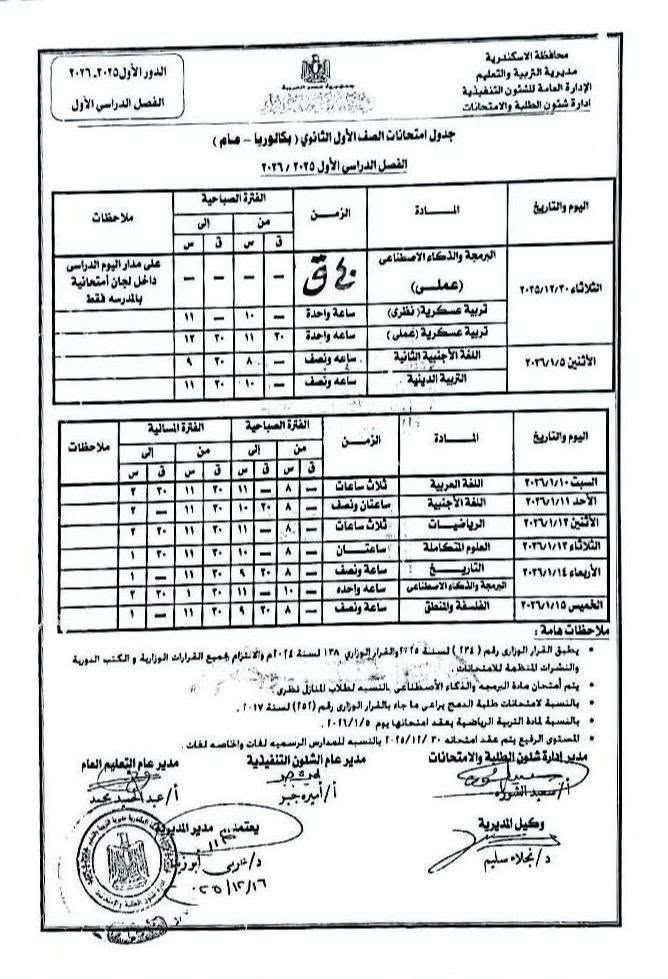 محافظة الاسكندرية
مديرية التربية والتعليم
الإدارة العامة للشئون التنفيذية
إدارة شئون الطلبة والامتحانات
جمهورية مصر العربية
الدور الأول ٢٠٢٥ـ٢٠٢٦
الفصل الدراسي الأول
جدول امتحانات الصف الأول الثانوي ( بكالوريا - عام )
الفصل الدراسي الأول ٢٠٢٥ / ٢٠٢٦
اليوم والتاريخ المـــادة الزمـن الفترة الصباحية ملاحظات
من إلى
ق س ق س
الثلاثاء ٢٠٢٥/١٢/٣٠ البرمجة والذكاء الاصطناعى (عملى) ٤٠ ق — — — — على مدار اليوم الدراسى داخل لجان أمتحانية بالمدرسه فقط
تربية عسكرية ( نظرى) ساعة واحدة — ١٠ — ١١
تربية عسكرية ( عملى ) ساعة واحدة ٣٠ ١١ ٣٠ ١٢
الأثنين ٢٠٢٦/١/٥ اللغة الأجنبية الثانية ساعه ونصف — ٨ ٣٠ ٩
التربية الدينية ساعه ونصف — ١٠ ٣٠ ١١
اليوم والتاريخ المـــادة الزمـن الفترة الصباحية الفترة المسائية ملاحظات
من إلى من إلى
ق س ق س ق س ق س
السبت ٢٠٢٦/١/١٠ اللغة العربية ثلاث ساعات — ٨ — ١١ ٣٠ ١١ ٣٠ ٢
الأحد ٢٠٢٦/١/١١ اللغة الأجنبية ساعتان ونصف — ٨ ٣٠ ١٠ ٣٠ ١١ — ٢
الأثنين ٢٠٢٦/١/١٢ الرياضيات ثلاث ساعات — ٨ — ١١ ٣٠ ١١ ٣٠ ٢
الثلاثاء ٢٠٢٦/١/١٣ العلوم المتكاملة ساعتـــان — ٨ — ١٠ ٣٠ ١١ ٣٠ ١
الأربعاء ٢٠٢٦/١/١٤ التاريـــخ ساعة ونصف — ٨ ٣٠ ٩ ٣٠ ١١ — ١
البرمجة والذكاء الاصطناعى ساعه واحده — ١٠ — ١١ ٣٠ ١ ٣٠ ٢
الخميس ٢٠٢٦/١/١٥ الفلسفة والمنطق ساعة ونصف — ٨ ٣٠ ٩ ٣٠ ١١ — ١
ملاحظات هامة :
يطبق القرار الوزارى رقم ( ٢٣٤ ) لسنة ٢٠٢٥ والقرار الوزاري ١٣٨ لسنة ٢٠٢٤م والالتزام بجميع القرارات الوزارية و الكتب الدورية
والنشرات المنظمة للامتحانات .
يتم أمتحان مادة البرمجه والذكاء الأصطناعى بالنسبه لطلاب المنازل نظرى .
بالنسبة لامتحانات طلبة الدمج يراعى ما جاء بالقرار الوزارى رقم (٢٥٢) لسنة ٢٠١٧ .
بالنسبة لمادة التربية الرياضية يعقد امتحانها يوم ٢٠٢٦/١/٥ .
المستوى الرفيع يتم عقد امتحانه ٢٠٢٥/١٢/٣٠ بالنسبه للمدارس الرسميه لغات والخاصه لغات .
مدير إدارة شئون الطلبة والامتحانات مدير عام الشئون التنفيذية مدير عام التعليم العام
أ/ سعيد أ/ أميرة جبر أ/ عبد الحميد محمد
وكيل المديرية يعتمد ،، مدير المديرية
د/ نجلاء سليم د/ عربى أبو زيد
٢٠٢٥/١٢/١٦